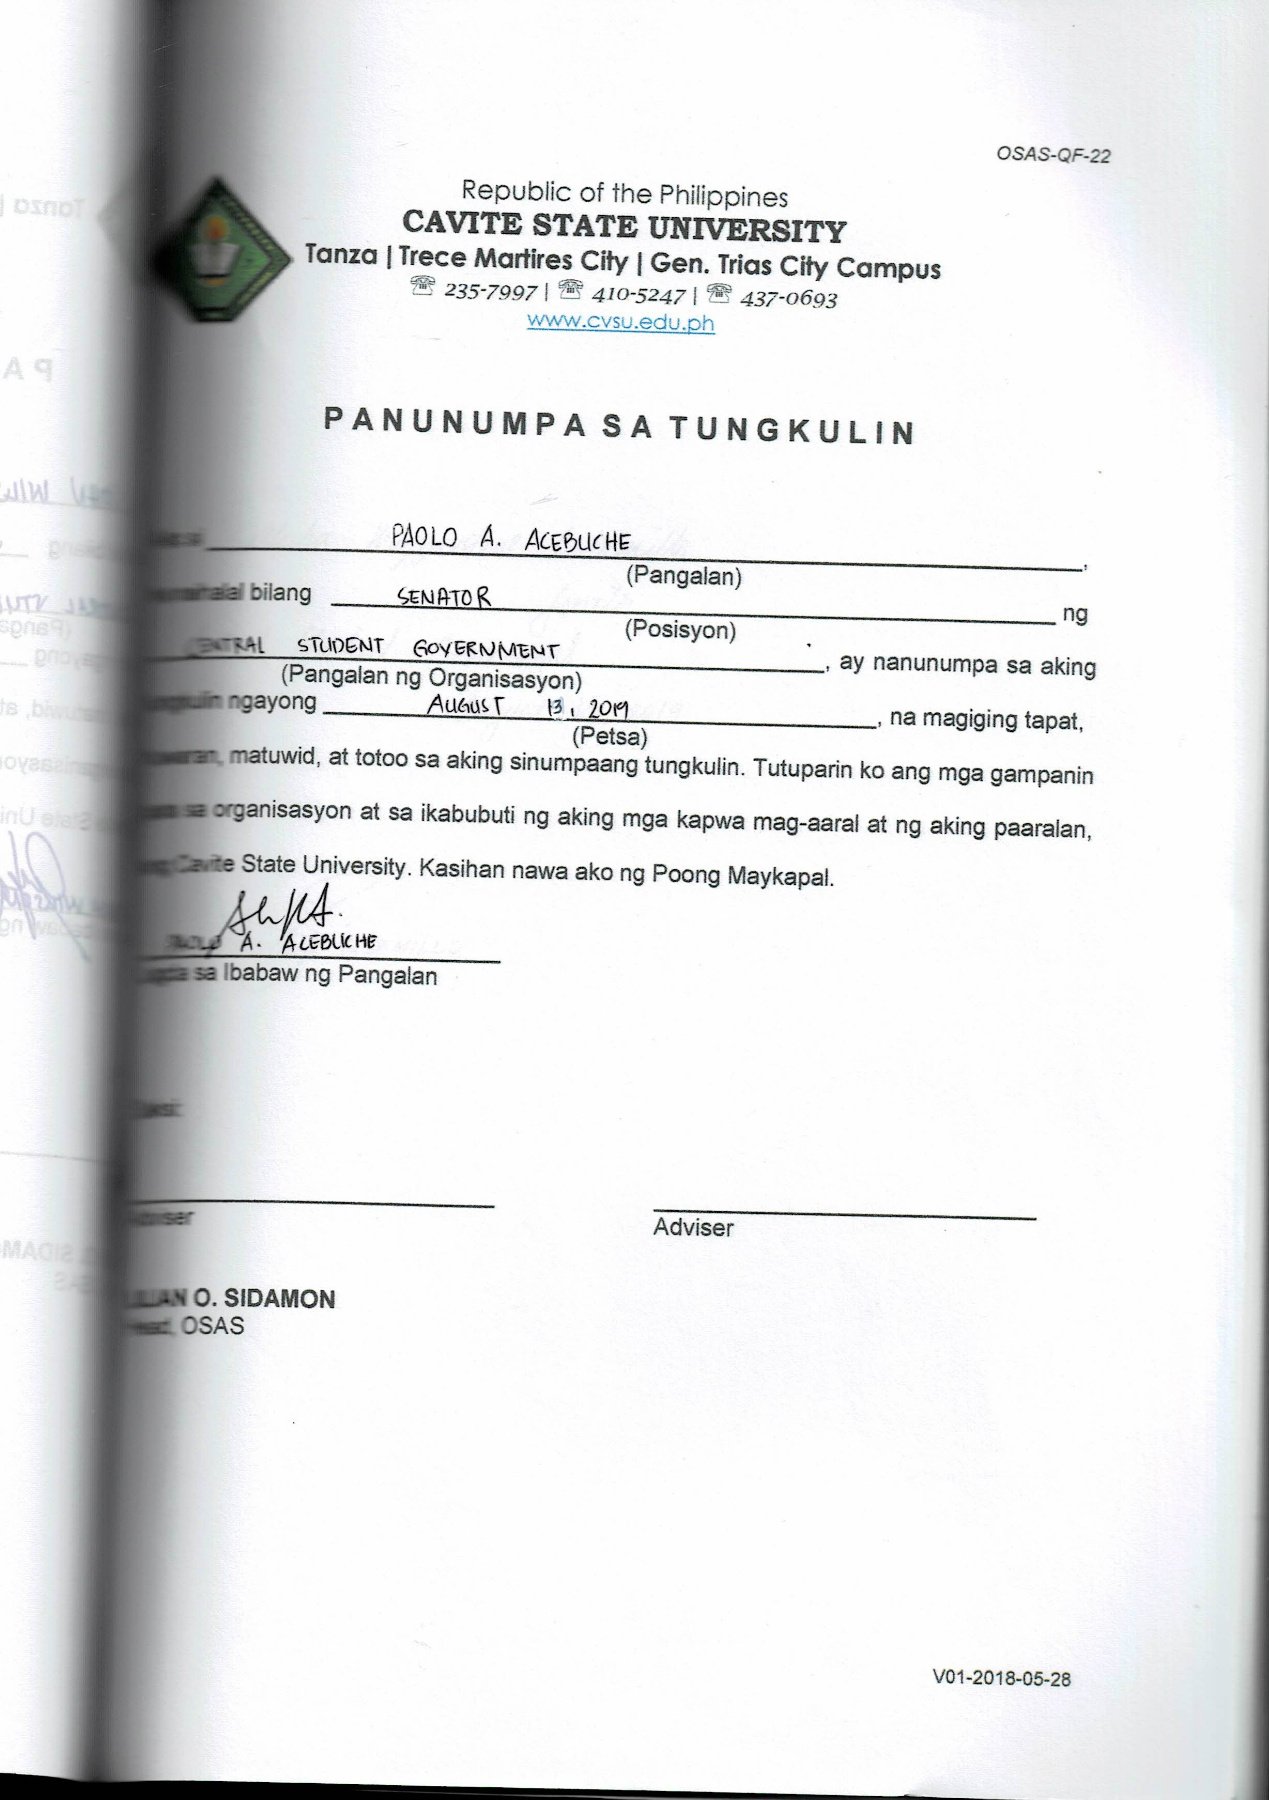 OSAS-QF-22
Republic of the Philippines
CAVITE STATE UNIVERSITY
Tanza | Trece Martires City | Gen. Trias City Campus
☏ 235-7997 | ☏ 410-5247 | ☏ 437-0693
www.cvsu.edu.ph
PANUNUMPA SA TUNGKULIN
PAOLO A. ACEBUCHE,
(Pangalan)
bilang SENATOR ng
(Posisyon)
CENTRAL STUDENT GOVERNMENT, ay nanunumpa sa aking
(Pangalan ng Organisasyon)
ngayong AUGUST 13, 2019, na magiging tapat,
(Petsa)
matuwid, at totoo sa aking sinumpaang tungkulin. Tutuparin ko ang mga gampanin
sa organisasyon at sa ikabubuti ng aking mga kapwa mag-aaral at ng aking paaralan,
ang Cavite State University. Kasihan nawa ako ng Poong Maykapal.
PAOLO A. ACEBUCHE
Lagda sa Ibabaw ng Pangalan
Adviser Adviser
O. SIDAMON
Head, OSAS
V01-2018-05-28